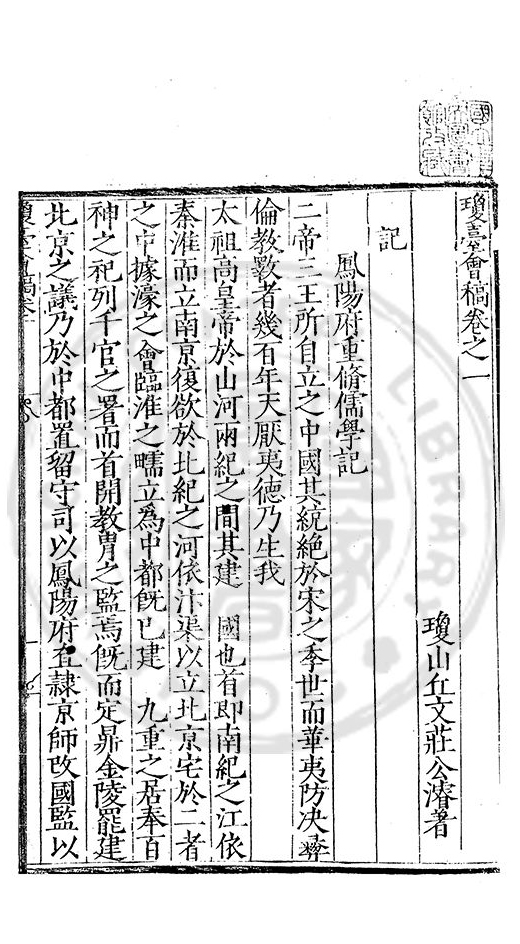 瓊臺會稿卷之一
瓊山丘文莊公濬著
記
鳳陽府重脩儒學記
二帝三王所自立之中國其統絕於宋之季世而華夷防决彝
倫教斁者幾百年天厭夷德乃生我
太祖高皇帝於山河兩紀之間其建　國也首即南紀之江依
秦淮而立南京復欲於北紀之河依汴渠以立北京宅於二者
之中據濠之會臨淮之壖立為中都旣已建　九重之居奉百
神之祀列千官之署而首開教胄之監焉旣而定鼎金陵罷建
北京之議乃於中都置留守司以鳳陽府直隸京師改國監以
LIBRARY